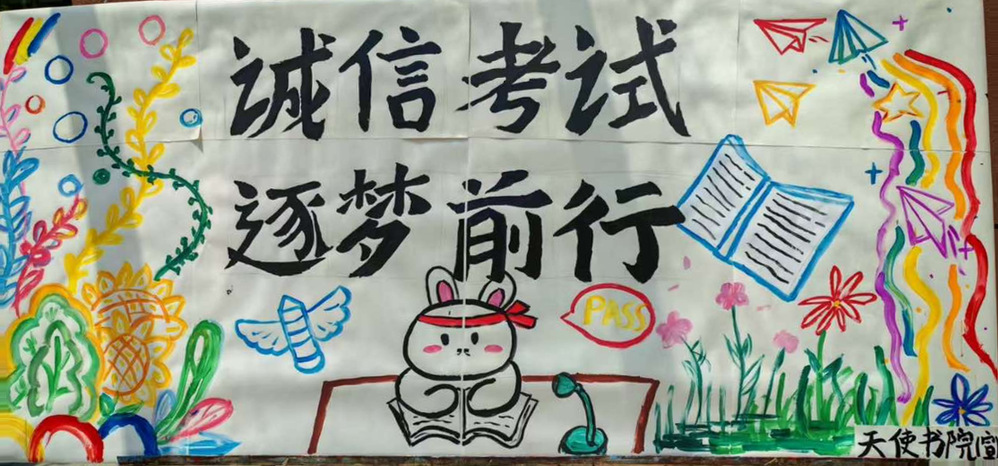 诚信考试
逐梦前行
PASS
天使书院